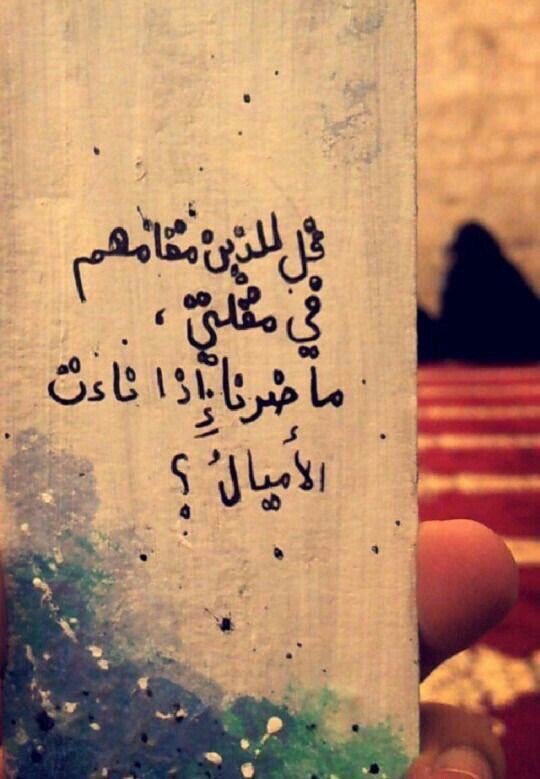 قل للذين مقامهم
في مقلتي ،
ما ضرنا إذا ناءت
الأميالُ ؟